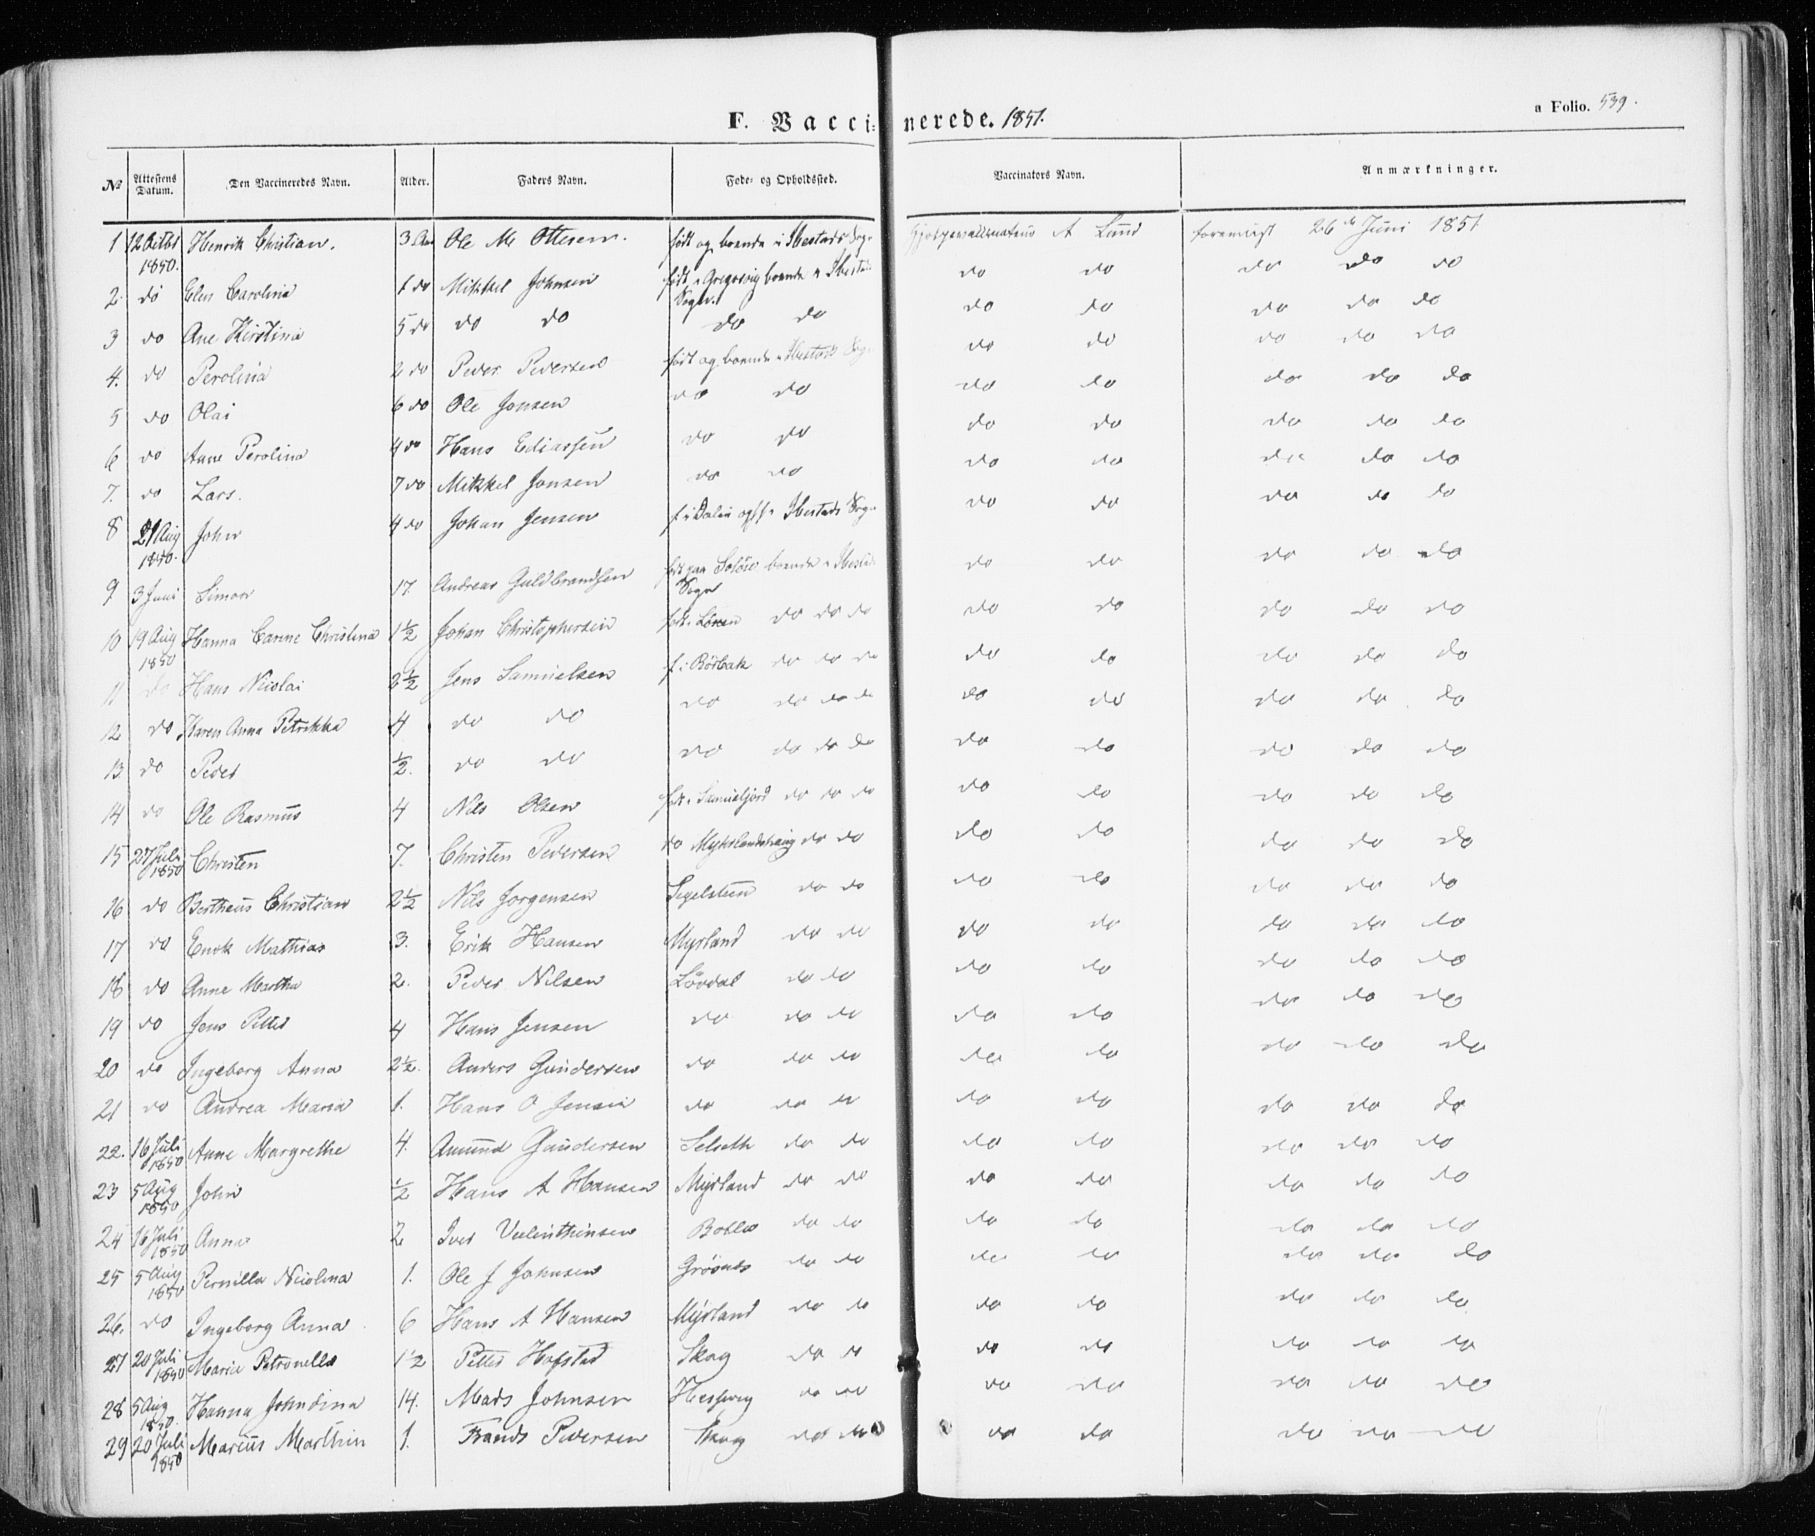 a Folio. 539.
F. Vaccinerede. 1851.
No Attestens Datum. Den Vaccineredes Navn. Alder. Faders Navn. Føde- og Opholdssted. Vaccinators Navn. Anmærkninger.
1 12 Octbr 1850. Henrik Christian. 3 Aar Ole M Ottesen. født og boende i Ibestads Sogn A Lund foreviist 26de Juni 1851
2 do Elen Carolina 1 do Mikkel Johnsen født i Gregusvig boende i Ibestad Sogn. do do do do do
3 do Ane Kirstina 5 do do do do do do do do do do
4. do Perolina 2 do Peder Pedersen født og boende i Ibestad Sogn do do do do do
5 do Olai 6 do Ole Jonsen do do do do do do do
6 do Anne Perolina 4 do Hans Ediassen do do do do do do do
7. do Lars. 7 do Mikkel Jonsen do do do do do do do
8 21 Aug 1850. John 4 do Johan Jensen Ibestads Sogn do do do do do
9 3 Juni Simon 17. Andreas Guldbrandsen født paa boende i Ibestad Sogn do do do do do
10 19 Aug 1850 Hanna Canne Christina 1½ Johan Christophersen født i Lønen do do do do do do do do
11 do Hans Nicolai 2½ Jens Samuelsen f. i Børbak do do do do do do do do
12 do Karen Anna Petrikka 4 do do do do do do do do do do do
13 do Peder ½. do do do do do do do do do do do
14 do Ole Rasmus 4 Nils Olsen født i Samueljord do do do do do do do do
15 27 Juli 1850 Christen 7. Christen Pedersen do do do do do do do do
16 do Bertheus Christian 2½ Nils Jorgensen Segelsteen do do do do do do do
17 do Enok Mathias 3. Erik Hansen Myrland do do do do do do do
18 do Anne Martha 2. Peder Nilsen Løvdal do do do do do do do
19 do Jens Petter 4 Hans Jensen do do do do do do do do
20 do Ingeborg Anna 2½. Anders Gundersen do do do do do do do do
21 do Andrea Maria 1. Hans O Jensen do do do do do do do do
22. 16 Juli 1850 Anne Margrethe 4. Amund Gundersen Selseth do do do do do do do
23 5 Aug 1850 John ½ Hans A Hansen Myrland do do do do do do do
24 16 Juli 1850 Anna 2 Iver do do do do do do do
25 5 Aug 1850 Pernilla Nicolina 1. Ole J Johnsen Grøsnes do do do do do do do
26. do Ingeborg Anna 6 Hans A Hansen Myrland do do do do do do do
27 20 Juli 1850 Marie Petronella 1½ Petter Hofstad Skog do do do do do do do
28 5 Aug 1850. Hanna Johndina 14. Mads Johnsen do do do do do do do
29 20 Juli 1850 Marius Marthin 1. Frands Pedersen Skog do do do do do do do